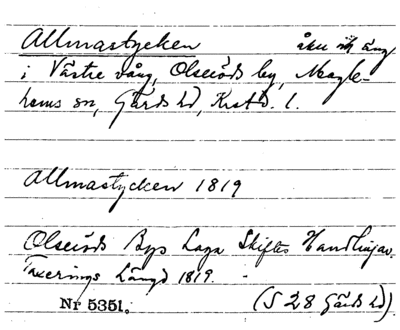 Allmastycken åker och äng
i Västre vång, Olseröds by, Magle-
hems sn, Gärds hd, Krst. l.
Allmastycken 1819
Olseröds Bys Laga Skiftes Handlingar.
Taxerings Längd 1819. -
Nr 5351. (S 28 Gärds hd).